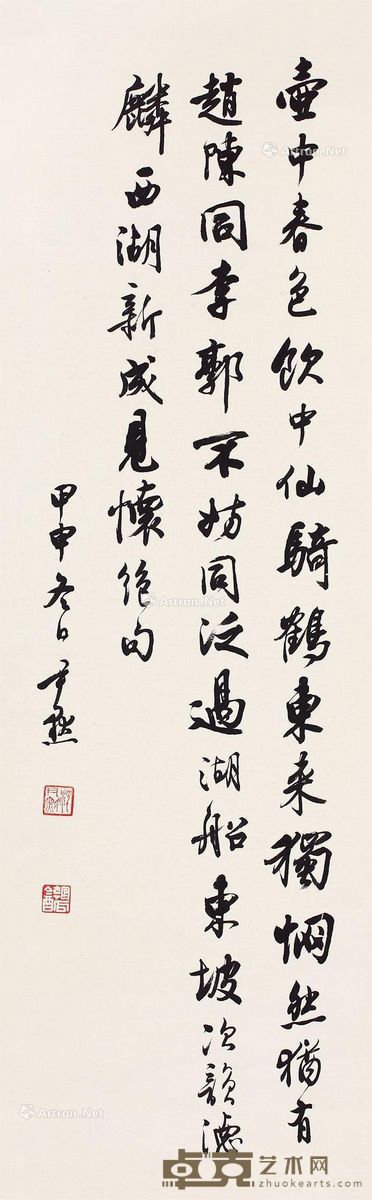 壺中春色飲中仙騎鶴東來獨惘然猶有
趙陳同李郭不妨同泛過湖船東坡次韻德
麟西湖新成見懷絕句
甲申冬日尹默
Artron.Net
Artron.Net
Artron.Net
卓克艺术网
www.zhuokearts.com